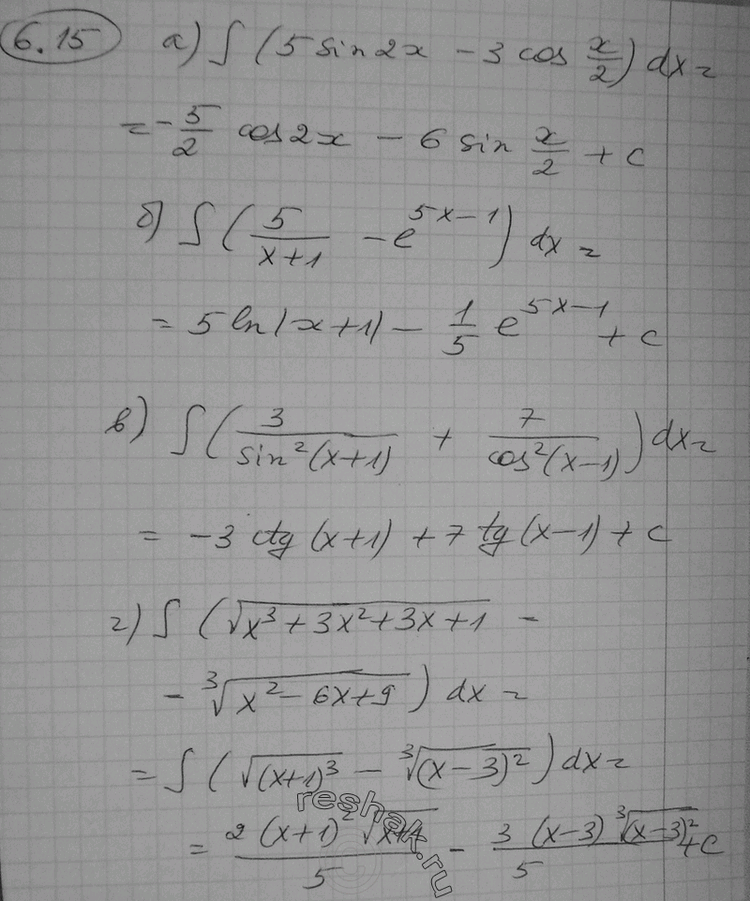 6.15 а) ∫ (5 sin 2x − 3 cos x/2) dx =
= −5/2 cos 2x − 6 sin x/2 + c
б) ∫ (5/(x+1) − e^(5x−1)) dx =
= 5 ln|x+1| − 1/5 e^(5x−1) + c
в) ∫ (3/(sin²(x+1)) + 7/(cos²(x−1))) dx =
= −3 ctg (x+1) + 7 tg (x−1) + c
г) ∫ (√(x³ + 3x² + 3x + 1) −
− ³√(x² − 6x + 9)) dx =
= ∫ (√((x+1)³) − ³√((x−3)²)) dx =
= (2 (x+1)² √(x+1))/5 − (3 (x−3) ³√((x−3)²))/5 + c
reshak.ru